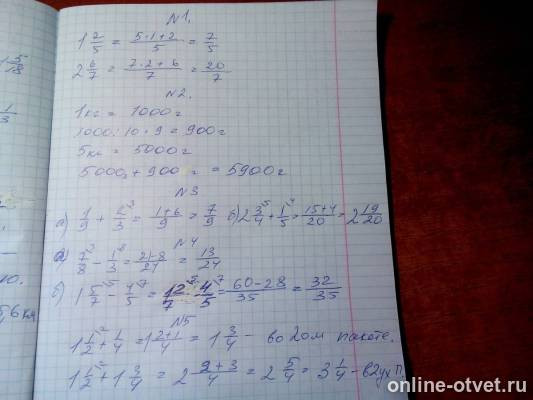 N1.
1 2/5 = (5·1+2)/5 = 7/5
2 6/7 = (7·2+6)/7 = 20/7
N2.
1кг = 1000г
1000:10·9 = 900г
5кг = 5000г
5000г + 900г = 5900г
N3
а) 1/9 + 2/3 = (1+6)/9 = 7/9 б) 2 3/4 + 1/5 = (15+4)/20 = 2 19/20
N4
а) 7/8 - 1/3 = (21-8)/24 = 13/24
б) 1 5/7 - 4/5 = 12/7 - 4/5 = (60-28)/35 = 32/35
N5
1 1/2 + 1/4 = 1 (2+1)/4 = 1 3/4 - во 2ом пакете.
1 1/2 + 1 3/4 = 2 (2+3)/4 = 2 5/4 = 3 1/4 - в 2ух п.
5/18
1/3
10.
5,6 км
online-otvet.ru